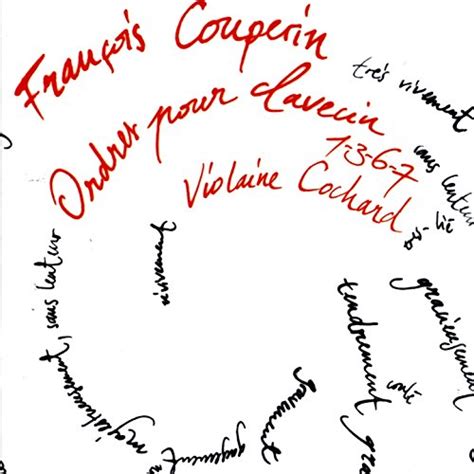 François Couperin
Ordres pour clavecin
1-3-6-7
Violaine Cochard
très vivement
sans lenteur
lié
gracieusement
tendrement
gaiement
gayement
majestueusement, sans lenteur
vivement